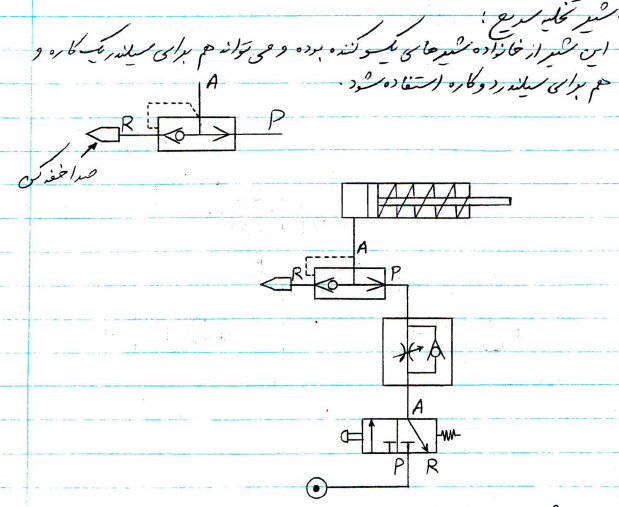 شیر تخلیه سریع :
این شیر از خانواده شیرهای یکسو کننده بوده و می تواند هم برای سیلندر یک کاره و
هم برای سیلندر دو کاره استفاده شود.
A
R P
صدا خفه کن
A
R P
A
P R